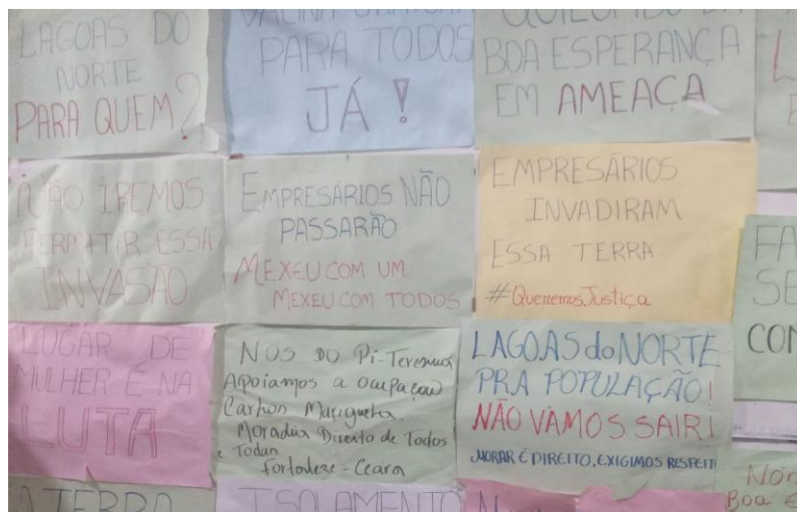 LAGOAS DO
NORTE
PARA QUEM?
PARA TODOS
JÁ!
BOA ESPERANÇA
EM AMEAÇA
NÃO IREMOS
PERMITIR ESSA
INVASÃO
EMPRESÁRIOS NÃO
PASSARÃO
MEXEU COM UM
MEXEU COM TODOS
EMPRESÁRIOS
INVADIRAM
ESSA TERRA
#QueremosJustiça
FA
SE
CON
LUGAR DE
MULHER É NA
LUTA
NOS DO Pi-Teresina
Apoiamos a ocupaçao
Carlhos Marigueta
Moradia Direito de Todos
e Todas
Fortaleze-Ceara
LAGOAS do NORTE
PRA POPULAÇÃO!
NÃO VAMOS SAIR!
MORAR É DIREITO, EXIGIMOS RESPEIT
A TERRA
ISOLAMENTO
Boa E